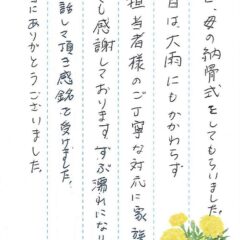 、母の納骨式をしてもらいました。
日は、大雨にもかかわらず
担当者様のご丁寧な対応に家族
も感謝しております。ずぶ濡れになり
話して頂き感銘を受けました。
にありがとうございました。